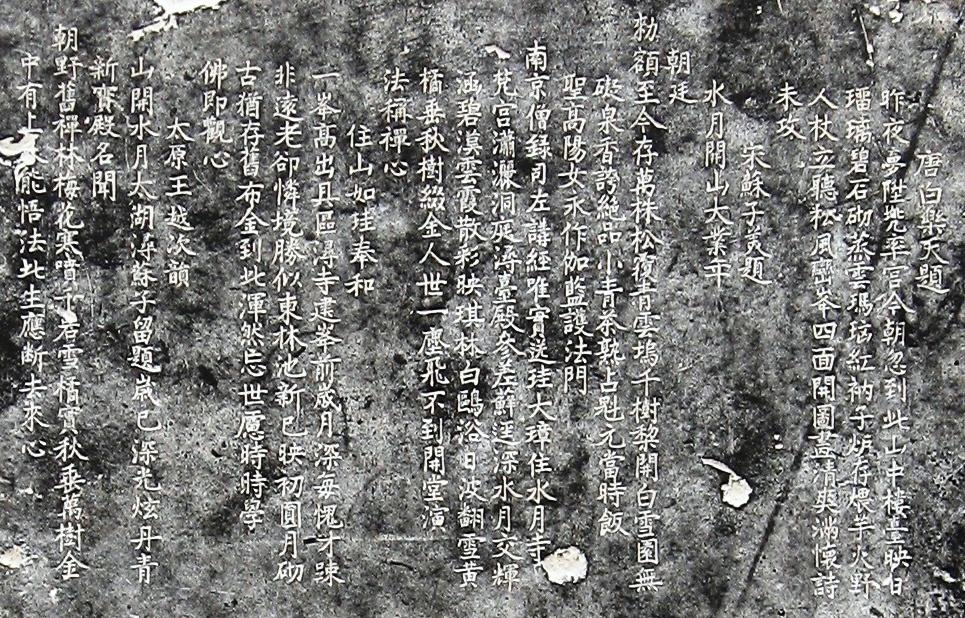 唐白樂天題
昨夜夢陞兜率宮今朝忽到此山中樓臺映日
瑠璃碧石砌蒸雲瑪瑙紅衲子炉存煨芋火野
人杖立聽松風齊峯四面開圖畫清爽滿懷詩
未攻
宋蘇子美題
水月開山大業年
朝廷
勑額至今存萬株松覆青雲塢千樹黎開白雪園無
礙泉香誇絕品小青茶熟占魁元當時飯
聖高陽女永作伽藍護法門
南京僧錄司左講經唯實送珪大璋住水月寺
梵宮瀟灑洞庭潯臺殿參差鮮逕深水月交輝
涵碧漠雲霞散彩映琪林白鷗浴日波翻雪黃
橘垂秋樹綴金人世一塵飛不到開堂演
法稱禪心
住山如珪奉和
一峯高出具區潯寺建峯前歲月深每愧才踈
非遠老卻憐境勝似東林池新已映初圓月砌
古猶存舊布金到此渾然忘世慮時時學
佛即觀心
太原王越次韻
山開水月太湖潯蘇子留題歲已深光炫丹青
新寳殿名聞
朝野舊禪林梅花寒噴千岩雪橘實秋垂萬樹金
中有上能悟法此生應斷去來心